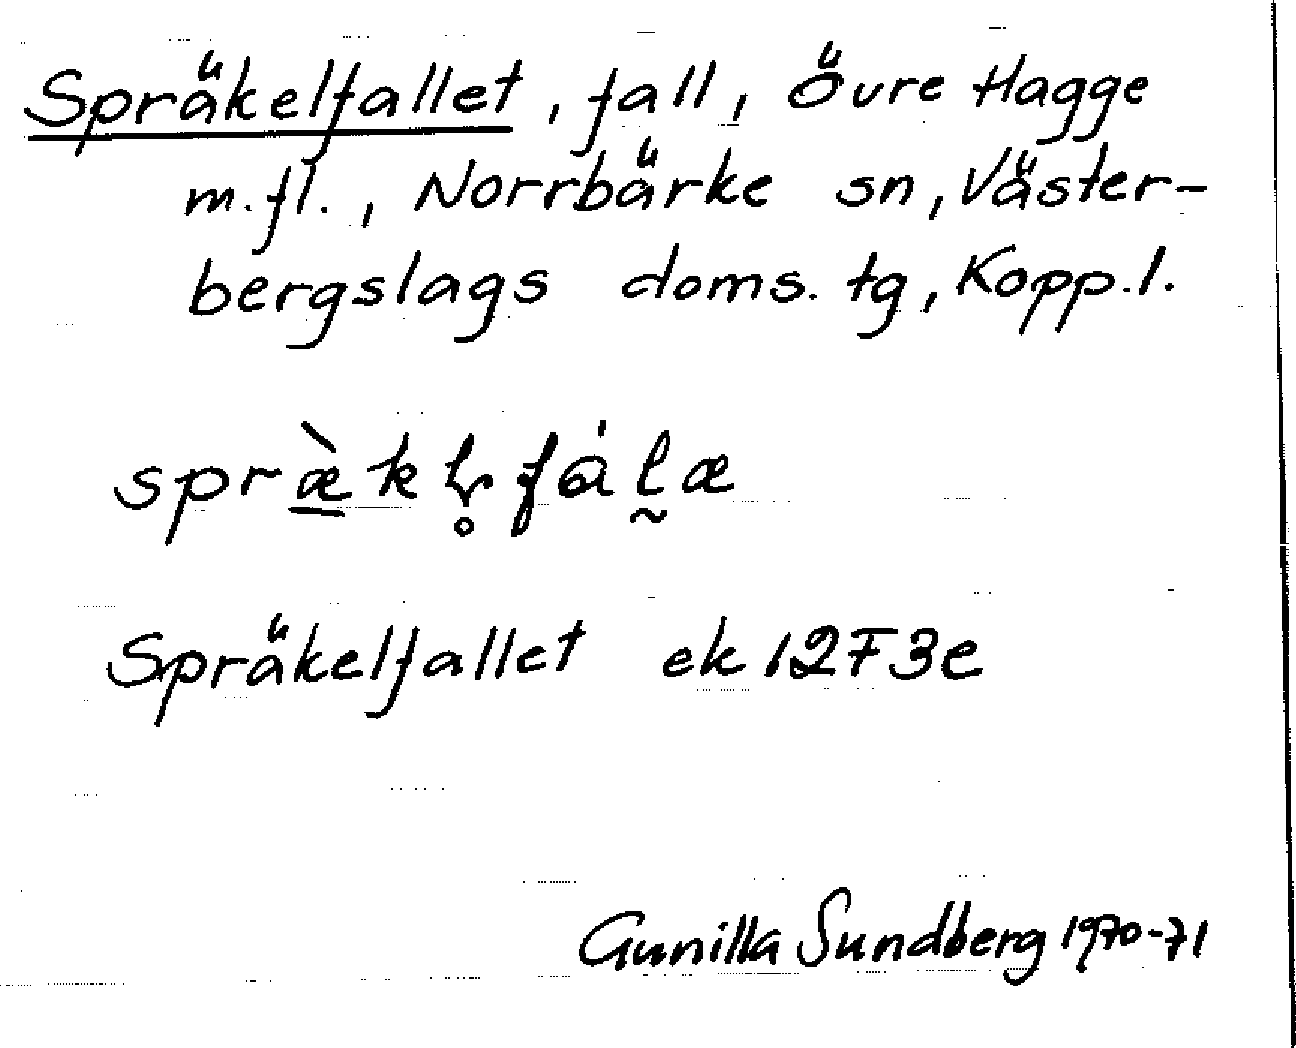 Spräkelfallet, fall, Övre Hagge
m.fl., Norrbärke sn, Väster-
bergslags doms. tg, Kopp.l.
Spräkelfallet ek 1273e
Gunilla Sundberg 1970-71